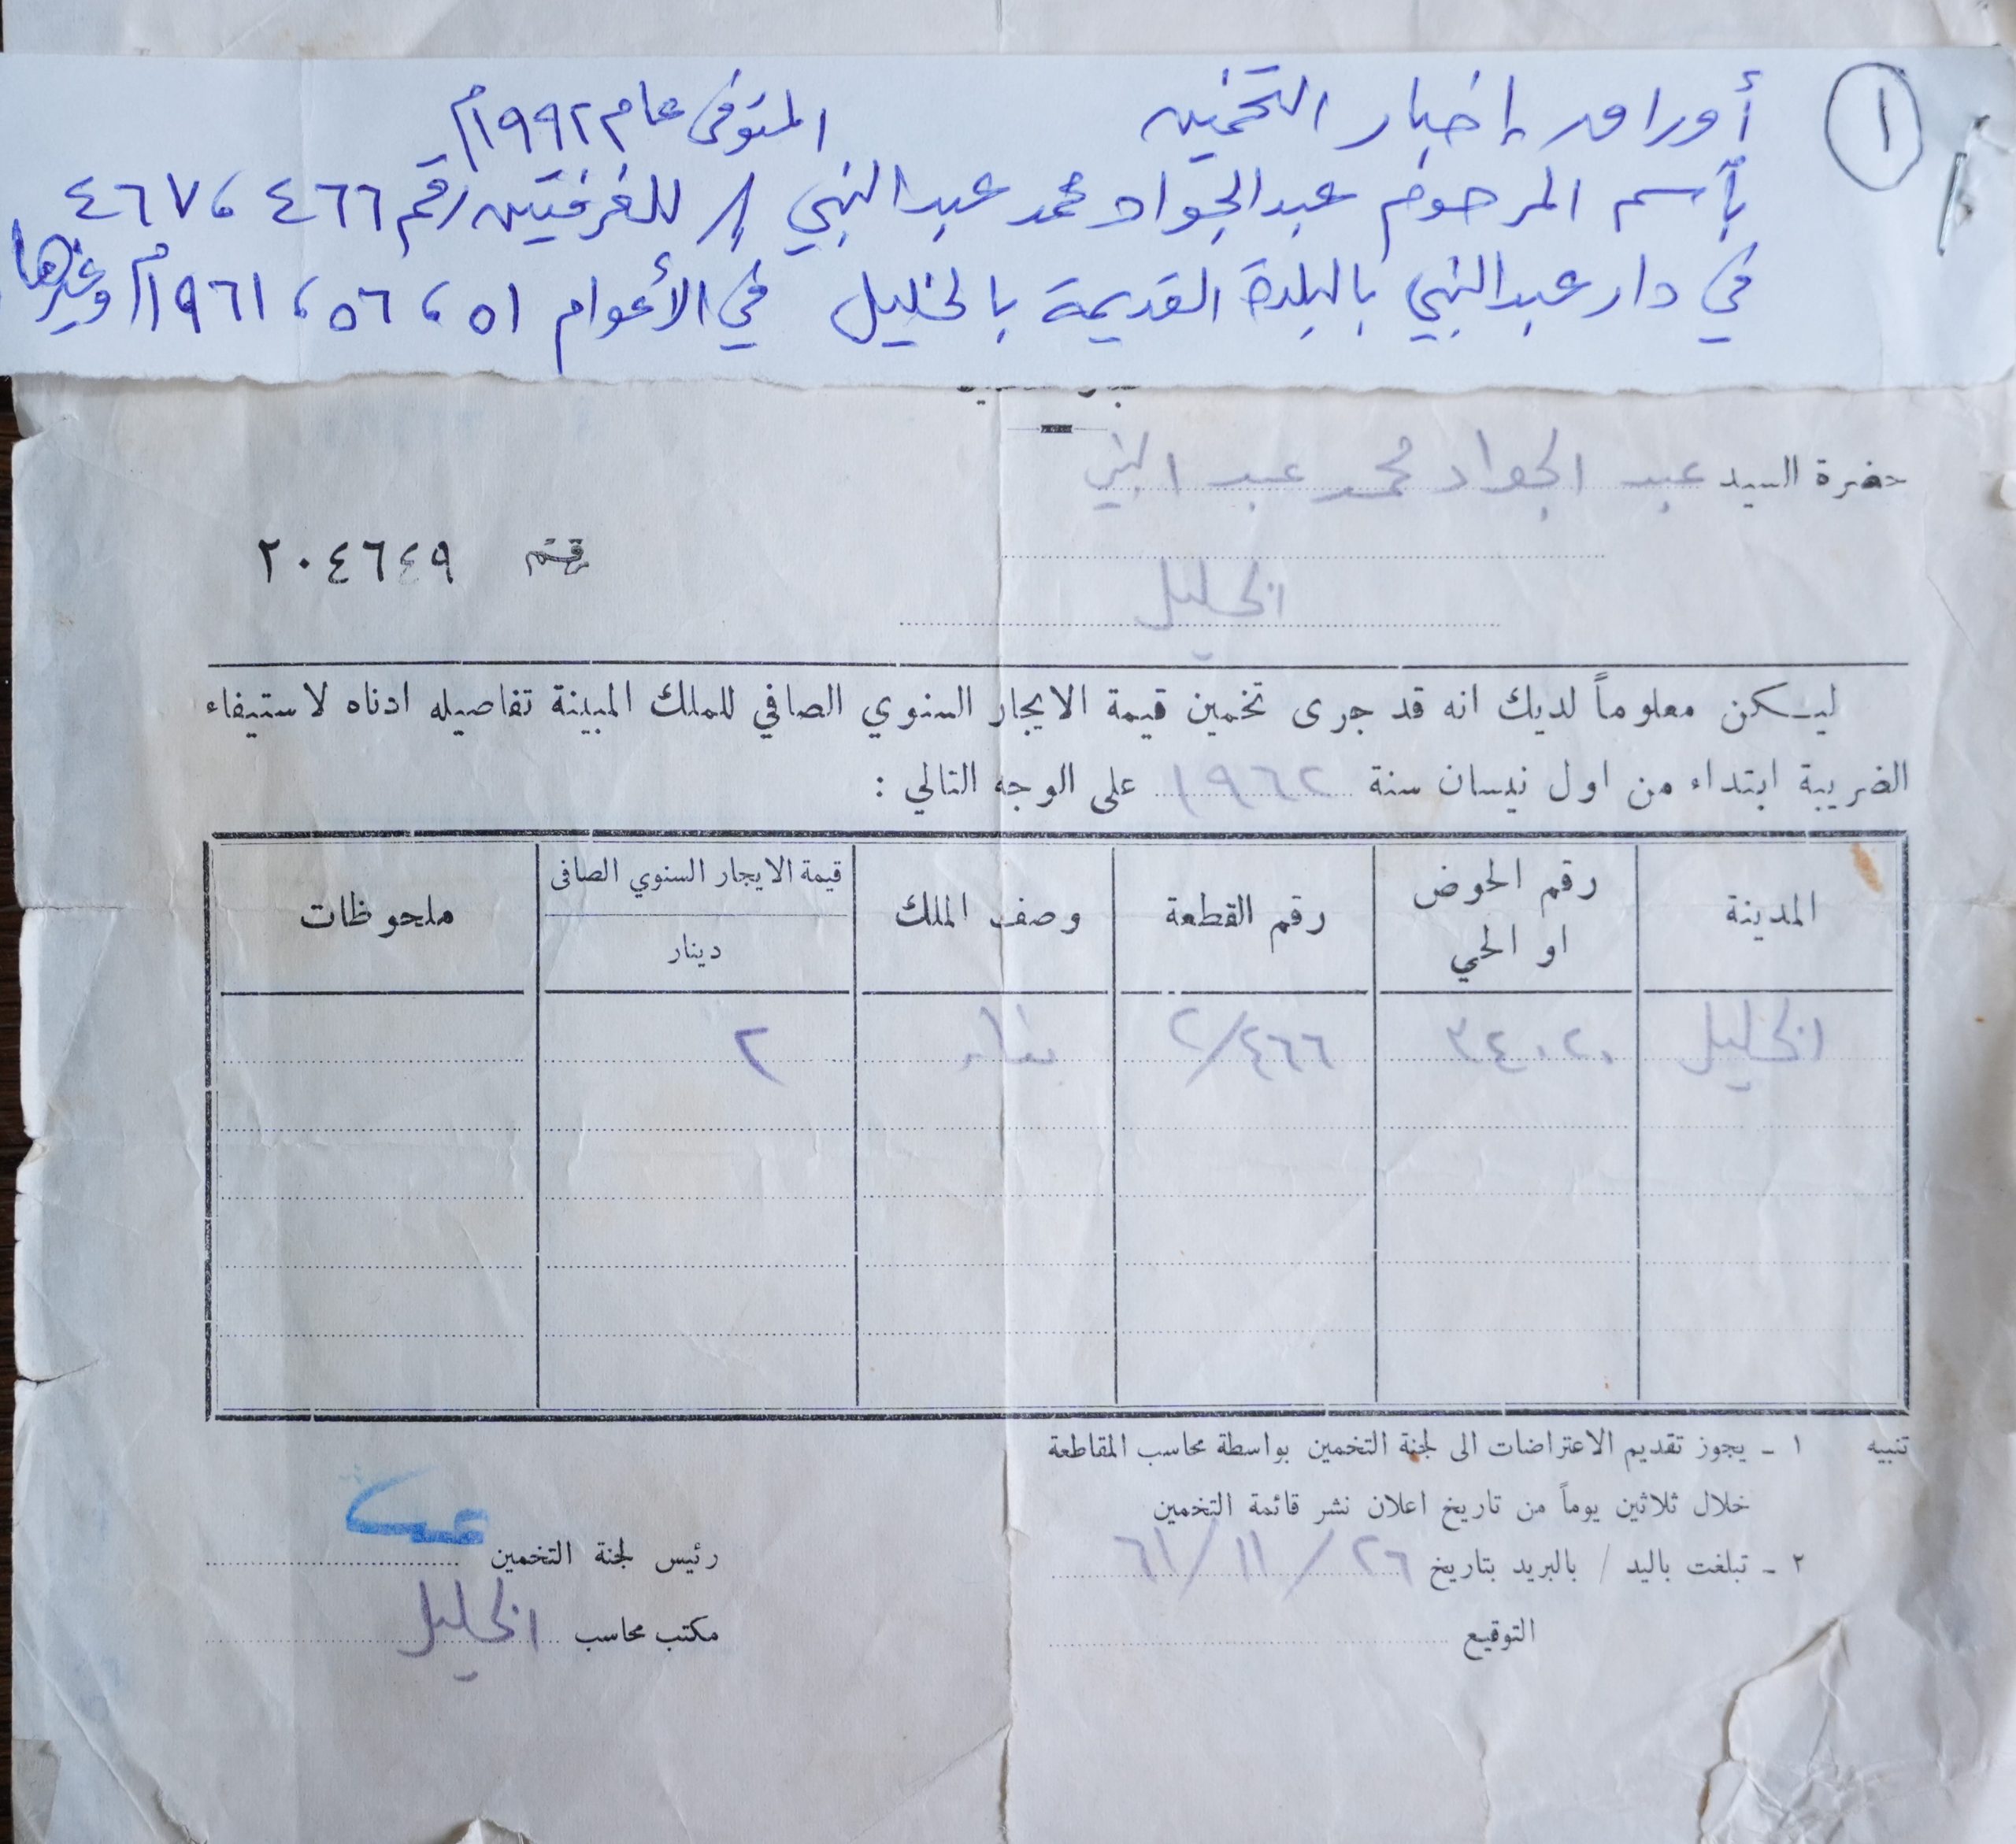 ١
أوراق إخبار التخمين المتوفى عام ١٩٩٢م
بآسم المرحوم عبدالجواد محمد عبدالنبي / للغرفتين رقم ٤٦٦، ٤٦٧
في دار عبدالنبي بالبلدة القديمة بالخليل في الأعوام ٥١، ٥٦، ١٩٦١م وغيرها
حضرة السيد عبد الجواد محمد عبد النبي
رقم ٢٠٤٦٤٩
الخليل
ليكن معلوماً لديك انه قد جرى تخمين قيمة الايجار السنوي الصافي للملك المبينة تفاصيله ادناه لاستيفاء
الضريبة ابتداء من اول نيسان سنة ١٩٦٢ على الوجه التالي :
المدينة رقم الحوض او الحي رقم القطعة وصف الملك قيمة الايجار السنوي الصافى دينار ملحوظات
الخليل ٣٤٠٢٠ ٢/٤٦٦ بناء ٢
تنبيه ١ ـ يجوز تقديم الاعتراضات الى لجنة التخمين بواسطة محاسب المقاطعة
خلال ثلاثين يوماً من تاريخ اعلان نشر قائمة التخمين
٢ ـ تبلغت باليد / بالبريد بتاريخ ٢٦/١١/٦١
التوقيع
رئيس لجنة التخمين
مكتب محاسب الخليل